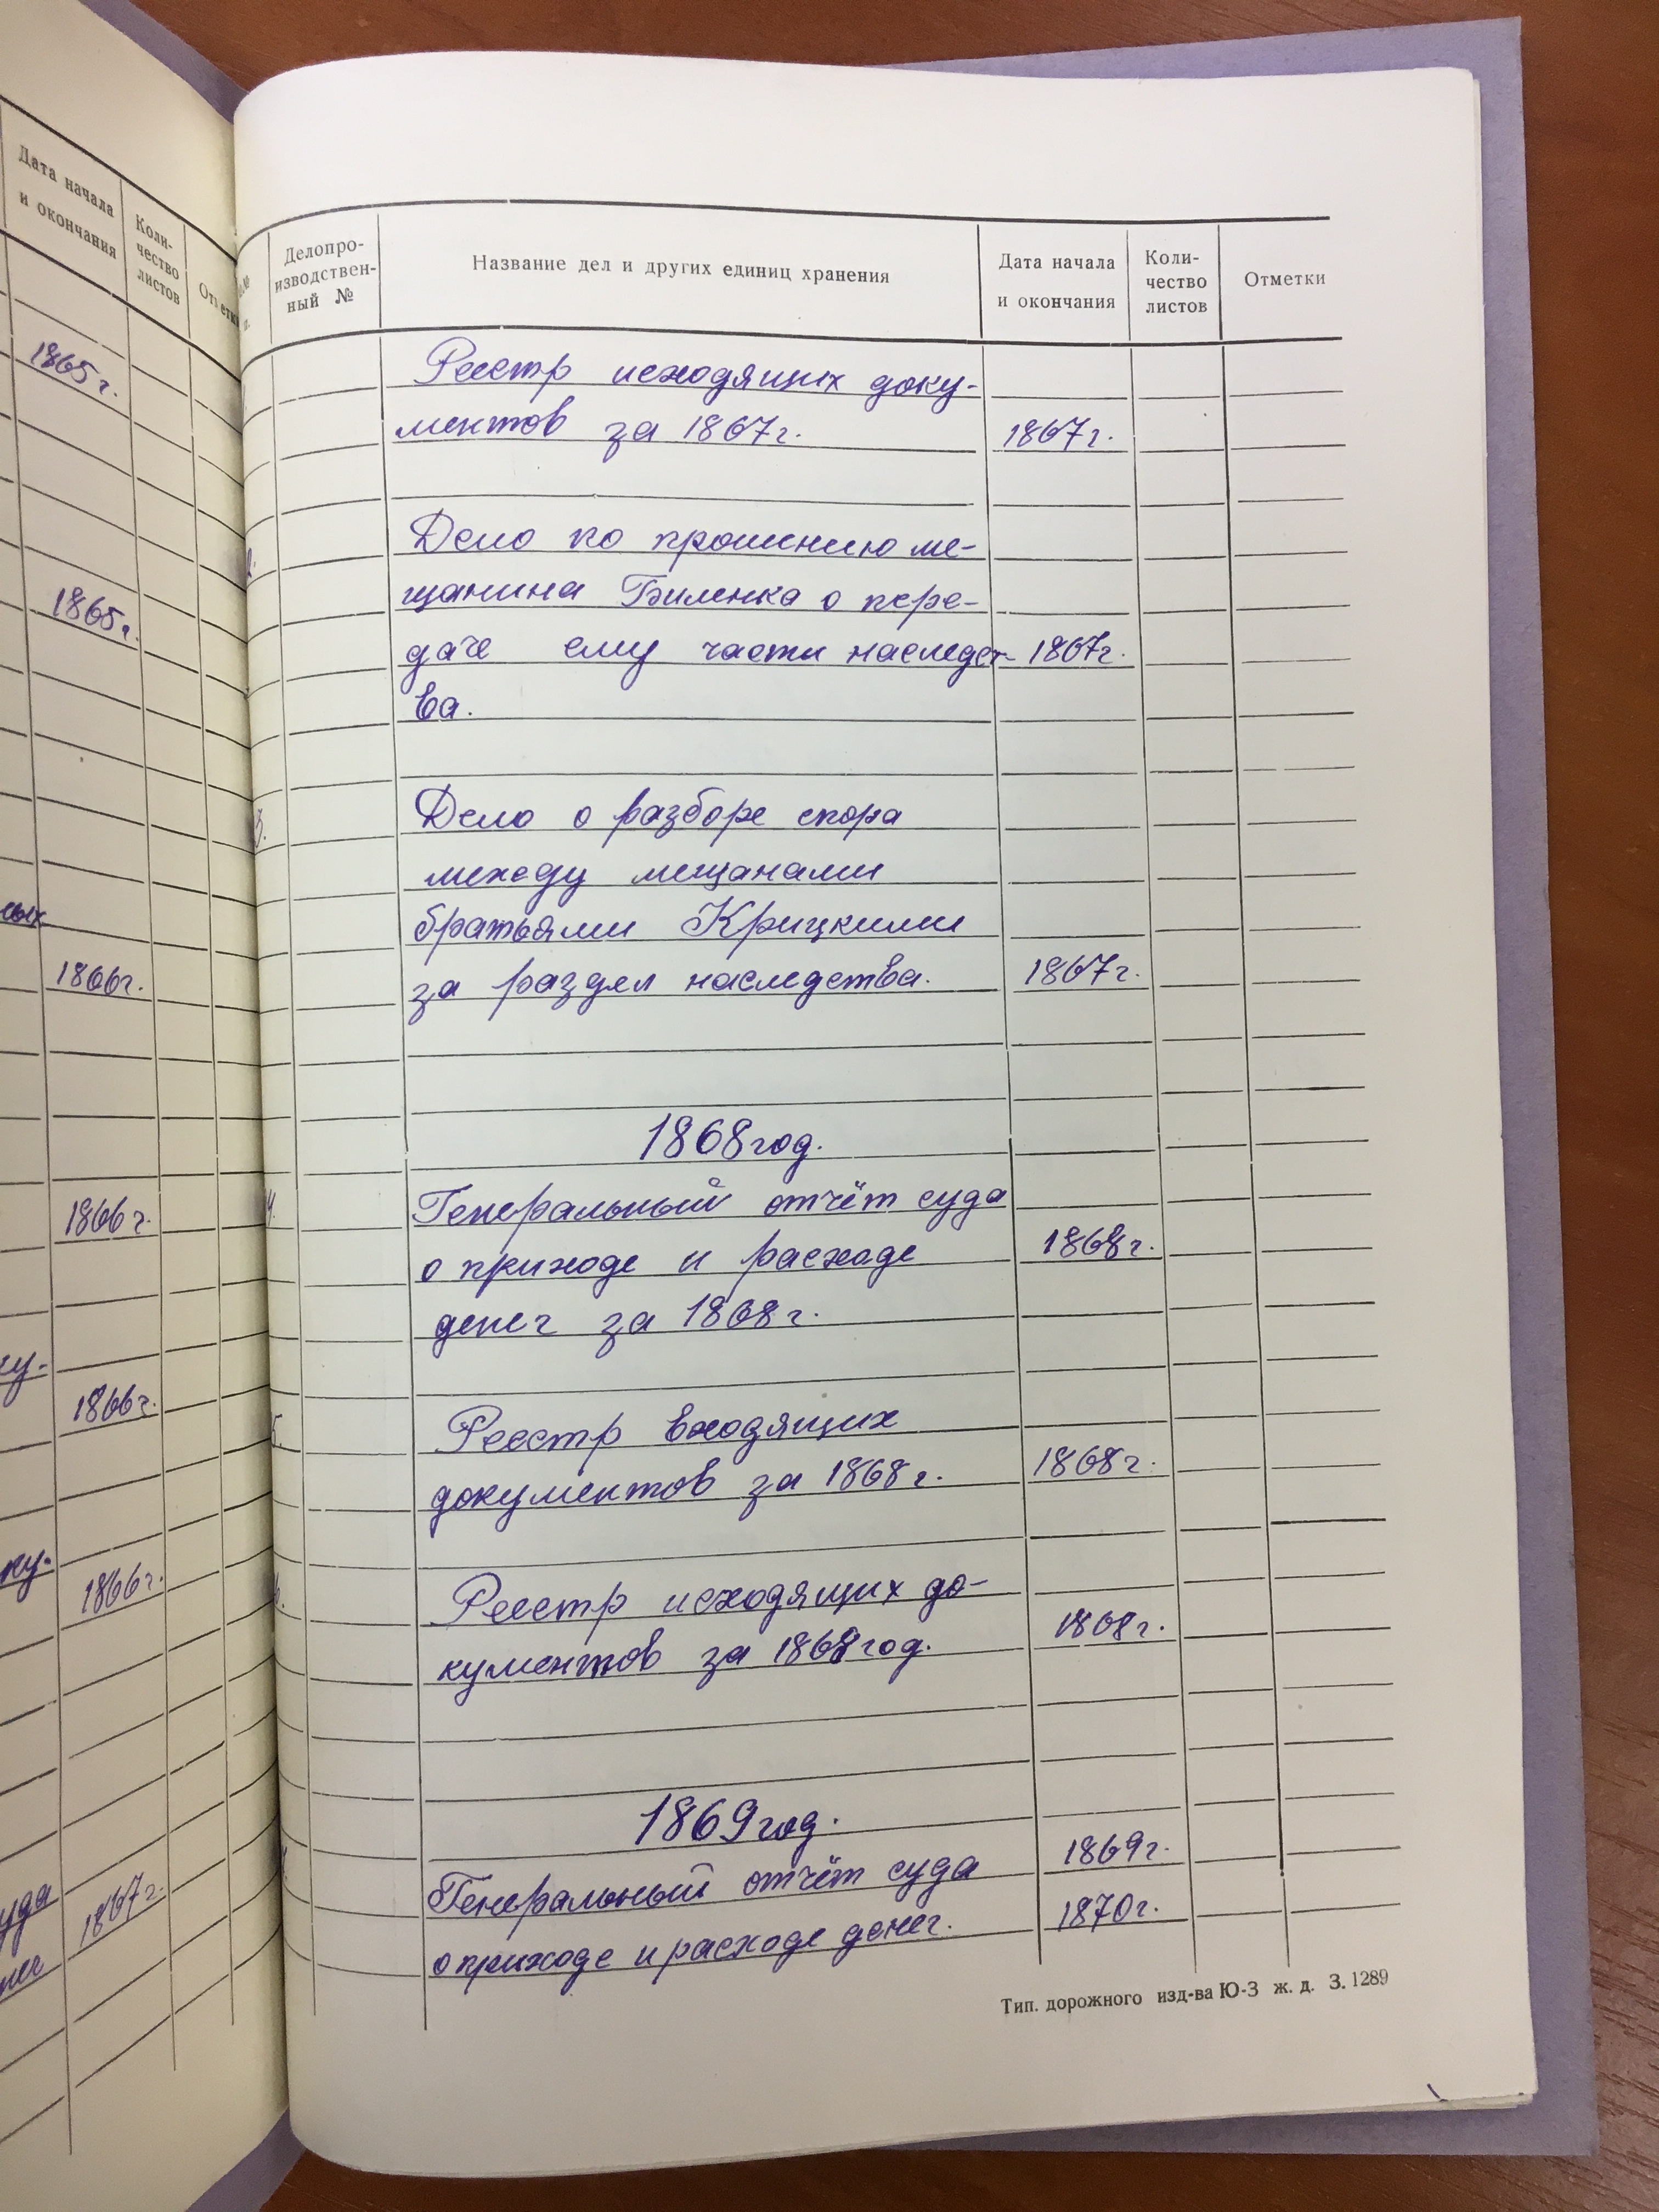 Дата начала
и окончания
Коли-
чество
листов
1865г.
1865г.
1866г.
1866г.
ку-
1866г.
ку-
1866г.
уда
1867г.
Делопро-
изводствен-
ный №
Название дел и других единиц хранения
Дата начала
и окончания
Коли-
чество
листов
Отметки
Реестр исходящих доку-
ментов за 1867г. 1867г.
2. Дело по прошению ме-
щанина Биленка о пере-
даче ему части наследст- 1867г.
ва.
3. Дело о разборе спора
между мещанами
братьями Крицкими
за раздел наследства. 1867г.
1868 год.
4. Генеральный отчёт суда
о приходе и расходе 1868г.
денег за 1868г.
5. Реестр входящих
документов за 1868г. 1868г.
6. Реестр исходящих до-
кументов за 1868 год. 1868г.
1869 год.
Генеральный отчёт суда 1869г.
о приходе и расходе денег. 1870г.
Тип. дорожного изд-ва Ю-З ж. д. З. 1289